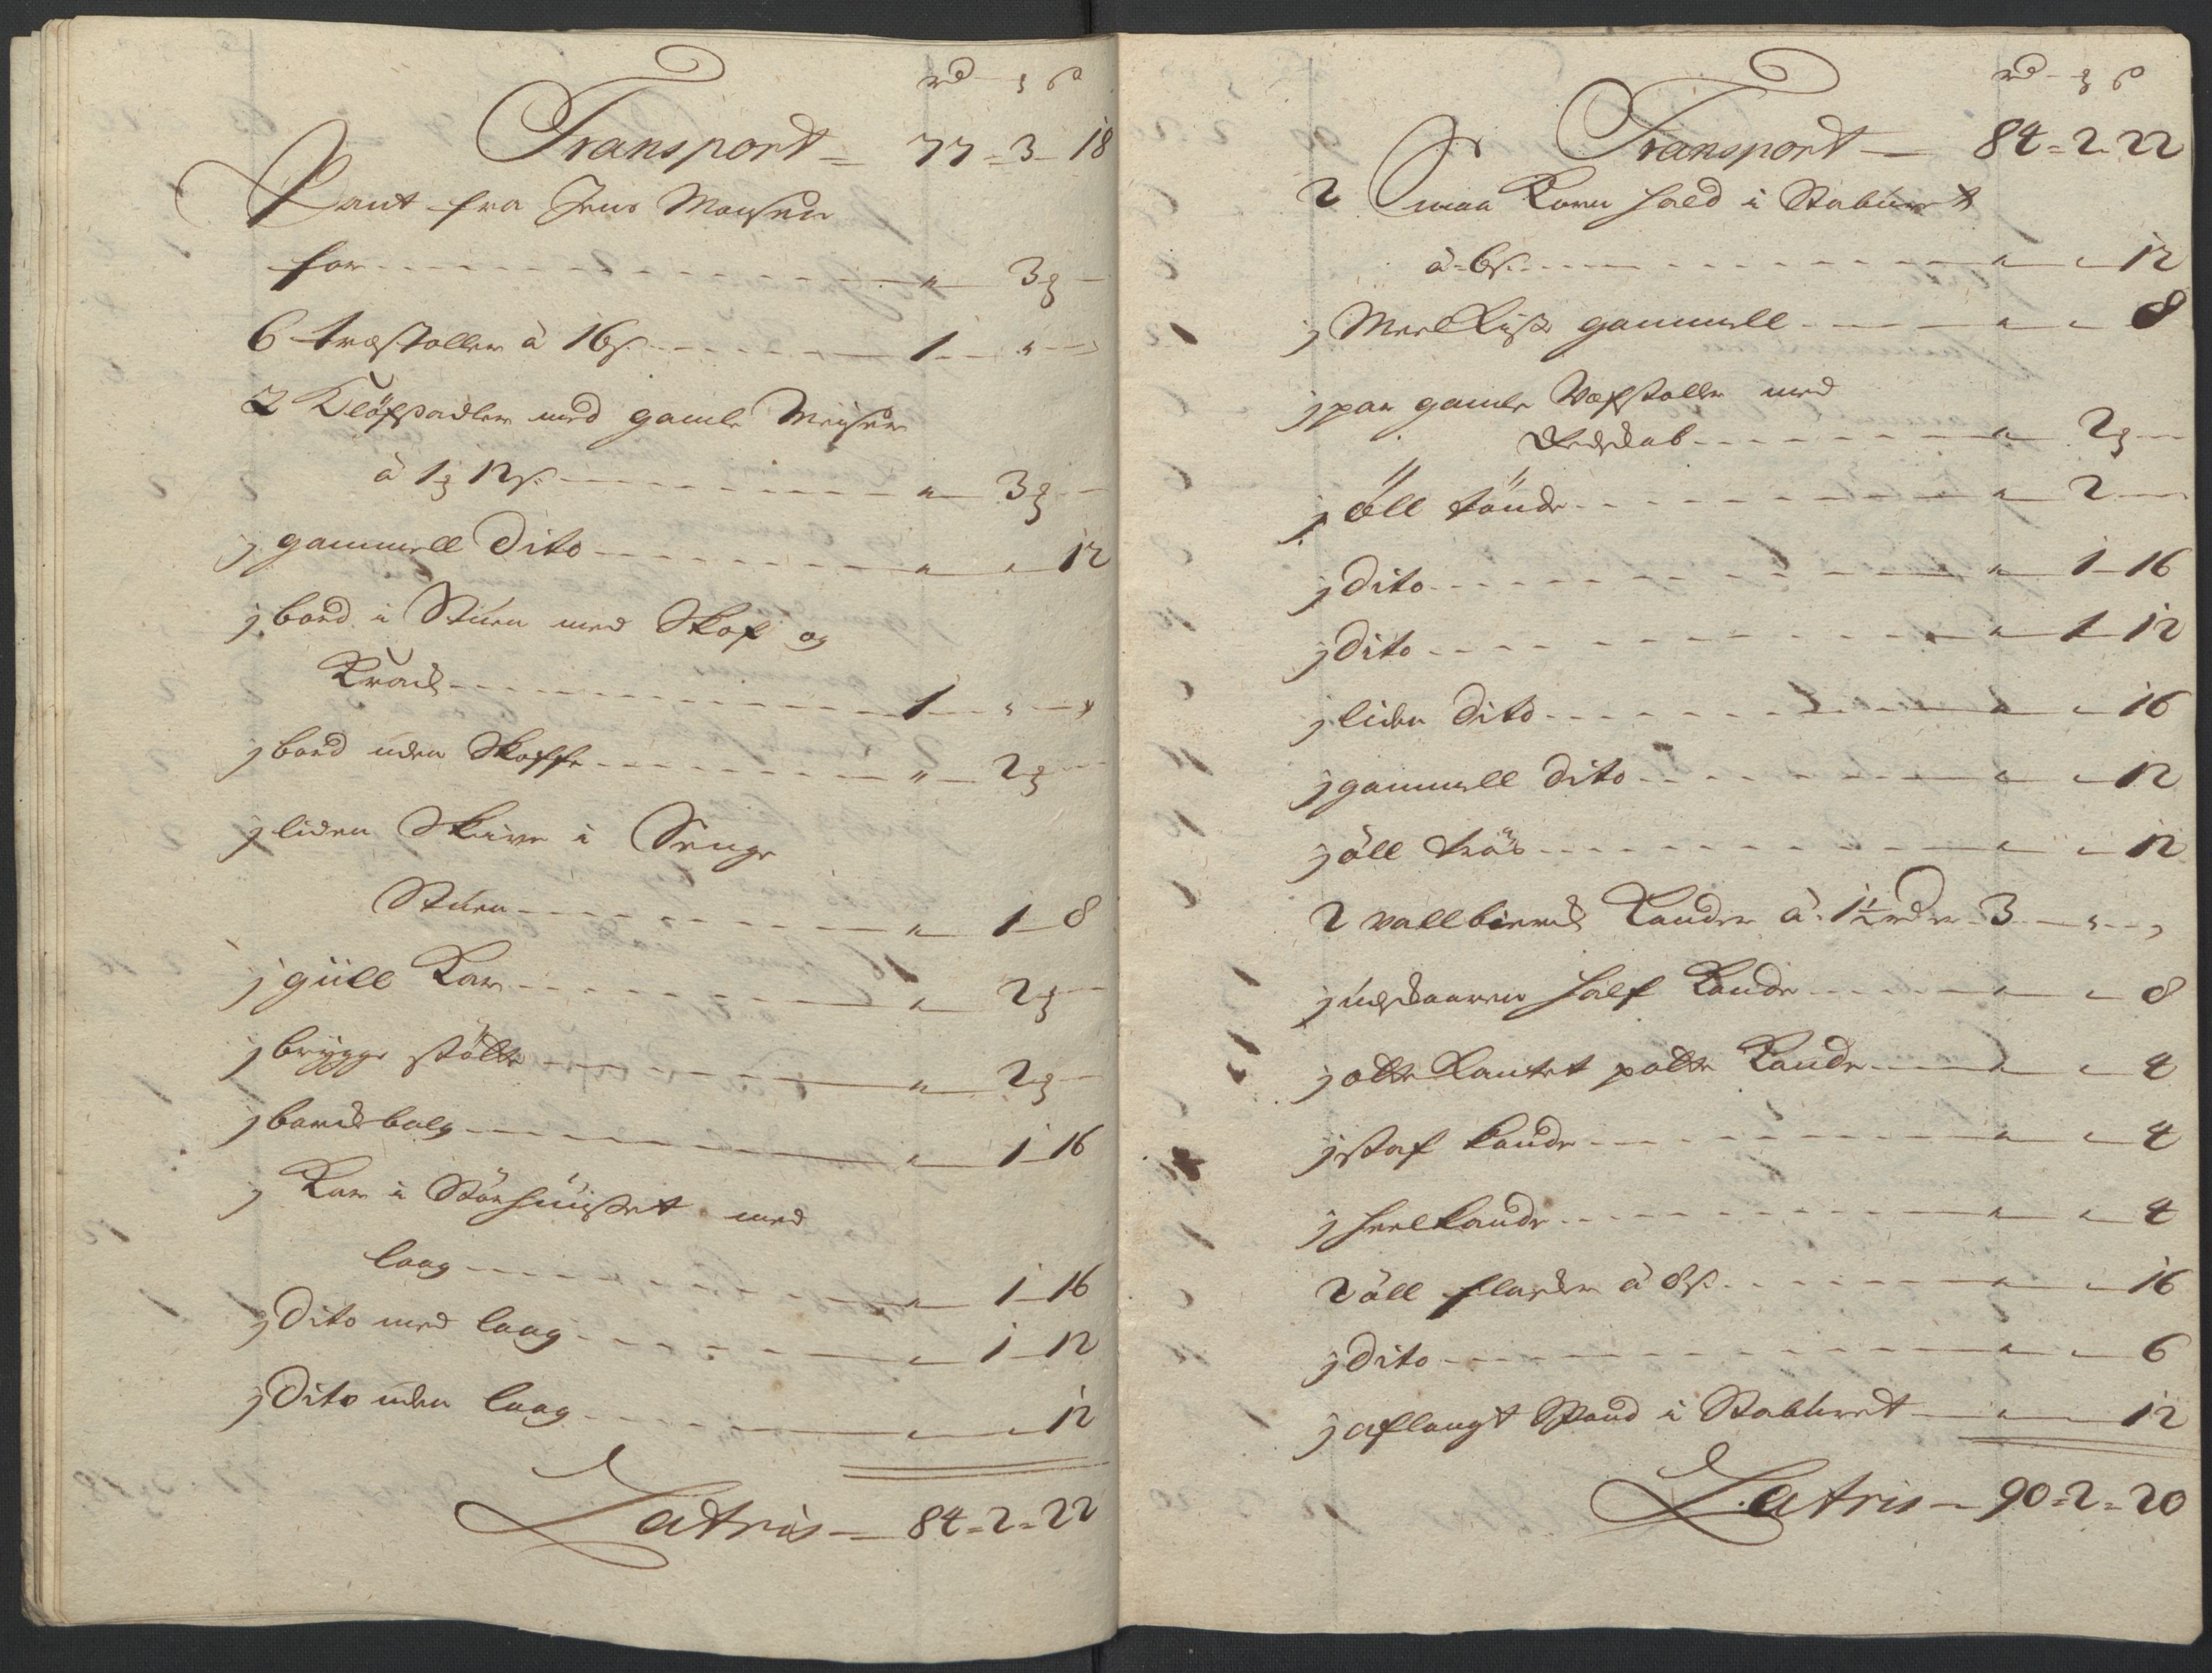 rd ꝫ ß
Transport — 77 = 3 — 18
Pant fra Jens Monsen
for — " — 3ꝫ —
6 træstoller à 16ß — 1 — " —
2 Kløfsadler med gamle Meiser
à 1ꝫ 12ß — " — 3ꝫ —
j gammell Dito — " — " 12
j bord i Stuen med Skof og
Krack — 1 — " — "
j bord uden Skoffe — " — 2ꝫ —
j liden Skive i Senge
Stuen — " — 1 — 8
j güll Kar — " — 2ꝫ —
j brygge støtte — " — 2ꝫ —
j barckbalg — " — 1 — 16
j Kar i Størhuuset med
laag — " — 1 — 16
j Dito med laag — " — 1 — 12
j Dito uden laag — " — " 12
Latris — 84 = 2 = 22
rd ꝫ ß
Transport — 84 = 2 22
2 Smaa Korn sold i Staburet
à 6ß — " — " 12
j Meel Kiiste gammell — " — " 8
j par gamle Wæfstolle med
Redskab — " — 2ꝫ —
j öll tönde — " — 2 —
j Dito — " — 1 — 16
j Dito — " — 1 — 12
j liden Dito — " — " 16
j gammell Dito — " — " 12
j öll — " — " 12
2 vallbircks Kander à 1½ rdr 3 — " — "
j udskaaren half Kande — " — " 8
j otte Kantet potte Kande — " — " 4
j staf kande — " — " 4
j heel kande — " — " 4
2 öll flasker à 8ß — " — " 16
j Dito — " — " 6
j aflangt Spand i Staburet — " — 12
Latris — 90 = 2 = 20